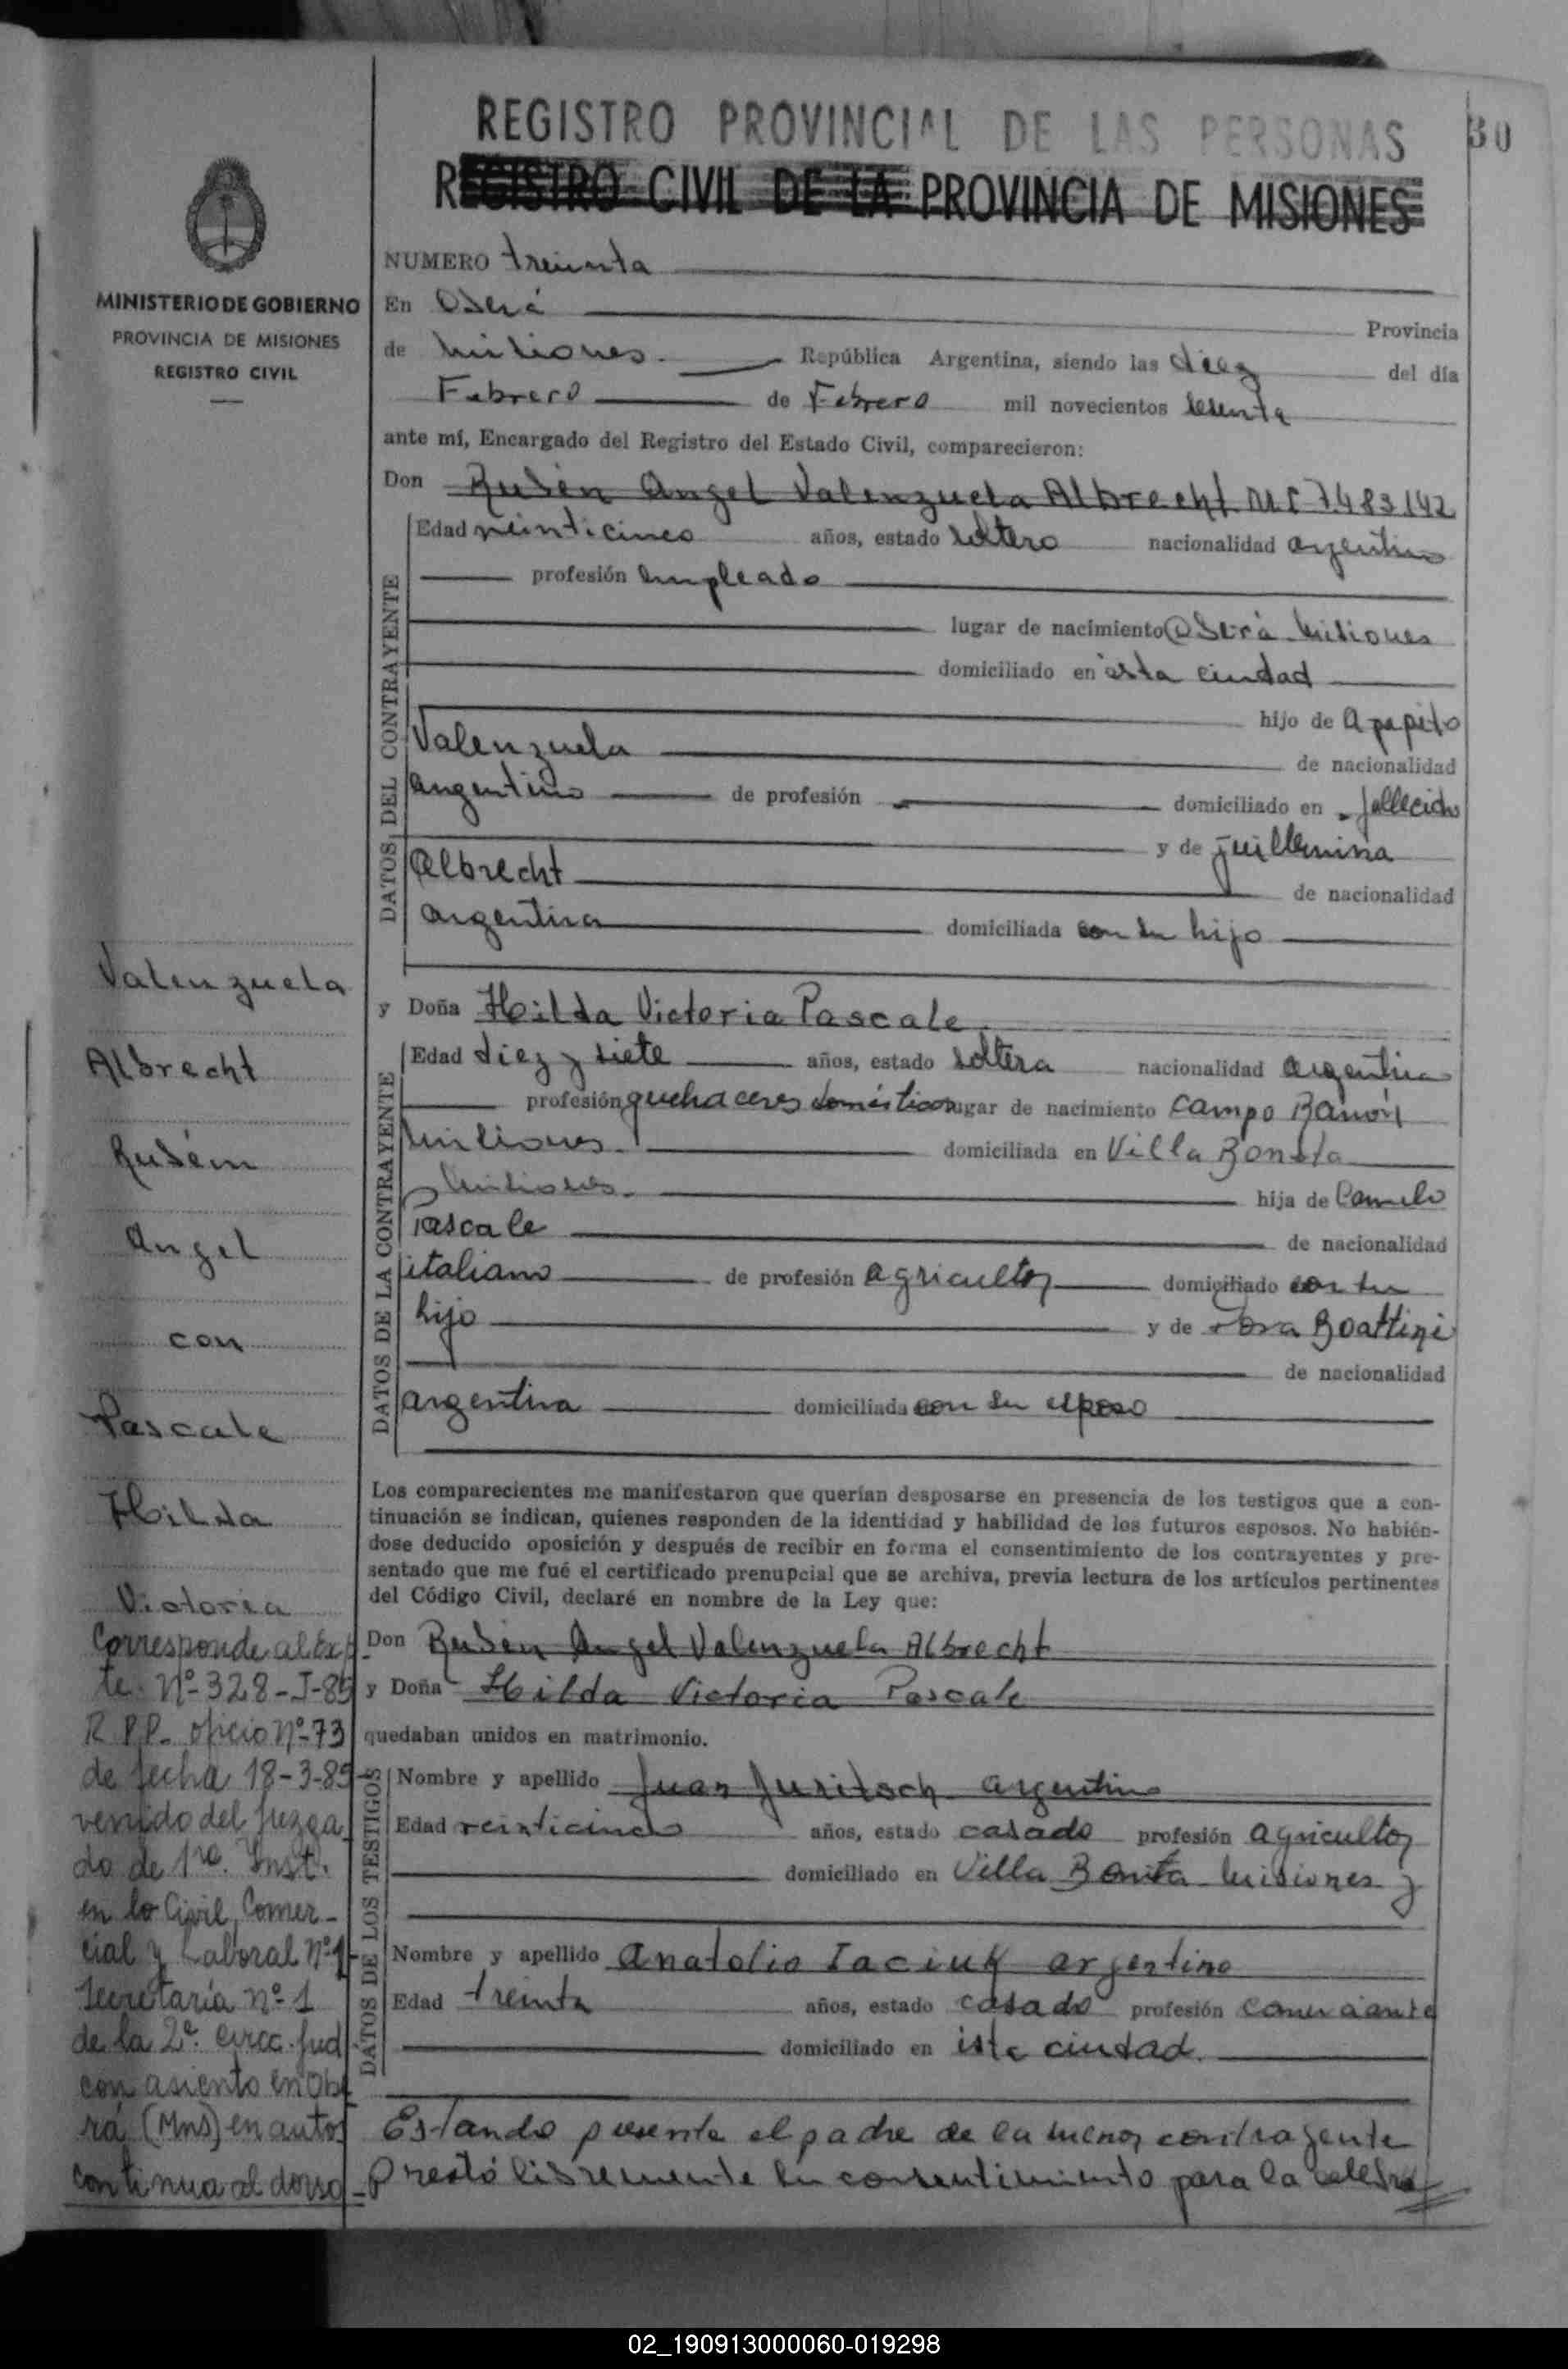 REGISTRO PROVINCIAL DE LAS PERSONAS
30
REGISTRO CIVIL DE LA PROVINCIA DE MISIONES
MINISTERIO DE GOBIERNO
PROVINCIA DE MISIONES
REGISTRO CIVIL
NUMERO treinta
En Oberá Provincia
de Misiones. República Argentina, siendo las diez del día
Febrero de Febrero mil novecientos sesenta
ante mí, Encargado del Registro del Estado Civil, comparecieron:
Don Rubén Angel Valenzuela Albrecht M I 7.483.142
DATOS DEL CONTRAYENTE
Edad veinticinco años, estado soltero nacionalidad argentino
profesión empleado
lugar de nacimiento Oberá Misiones
domiciliado en esta ciudad
hijo de Agapito
Valenzuela de nacionalidad
argentino de profesión domiciliado en fallecido
y de Guillermina
Albrecht de nacionalidad
argentina domiciliada con su hijo
y Doña Hilda Victoria Pascale
DATOS DE LA CONTRAYENTE
Edad diez y siete años, estado soltera nacionalidad argentina
profesión quehaceres domésticos lugar de nacimiento Campo Ramón
Misiones. domiciliada en Villa Bonita
Misiones. hija de
Pascale de nacionalidad
italiano de profesión agricultor domiciliado con su
hijo y de Rosa Boattini
de nacionalidad
argentina domiciliada con su esposo
Los comparecientes me manifestaron que querían desposarse en presencia de los testigos que a con-
tinuación se indican, quienes responden de la identidad y habilidad de los futuros esposos. No habién-
dose deducido oposición y después de recibir en forma el consentimiento de los contrayentes y pre-
sentado que me fué el certificado prenupcial que se archiva, previa lectura de los artículos pertinentes
del Código Civil, declaré en nombre de la Ley que:
Don Rubén Angel Valenzuela Albrecht
y Doña Hilda Victoria Pascale
quedaban unidos en matrimonio.
DATOS DE LOS TESTIGOS
Nombre y apellido Juan Juritsch argentino
Edad veinticinco años, estado casado profesión agricultor
domiciliado en Villa Bonita Misiones y
Nombre y apellido Anatolio Iaciuk argentino
Edad treinta años, estado casado profesión comerciante
domiciliado en esta ciudad.
Estando presente el padre de la menor contrayente
prestó libremente su consentimiento para la celebra
Valenzuela
Albrecht
Rubém
Angel
con
Pascale
Hilda
Victoria
Corresponde al Exp
te. Nº 328-J-85
R.P.P. oficio Nº 73
de fecha 18-3-85
venido del Juzga
do de 1ra. Inst.
en lo Civil, Comer-
cial y Laboral Nº 1
Secretaría nº 1
de la 2ª. Circ. Jud
con asiento en Obe
rá (Mns) en autos
continua al dorso
02_190913000060-019298